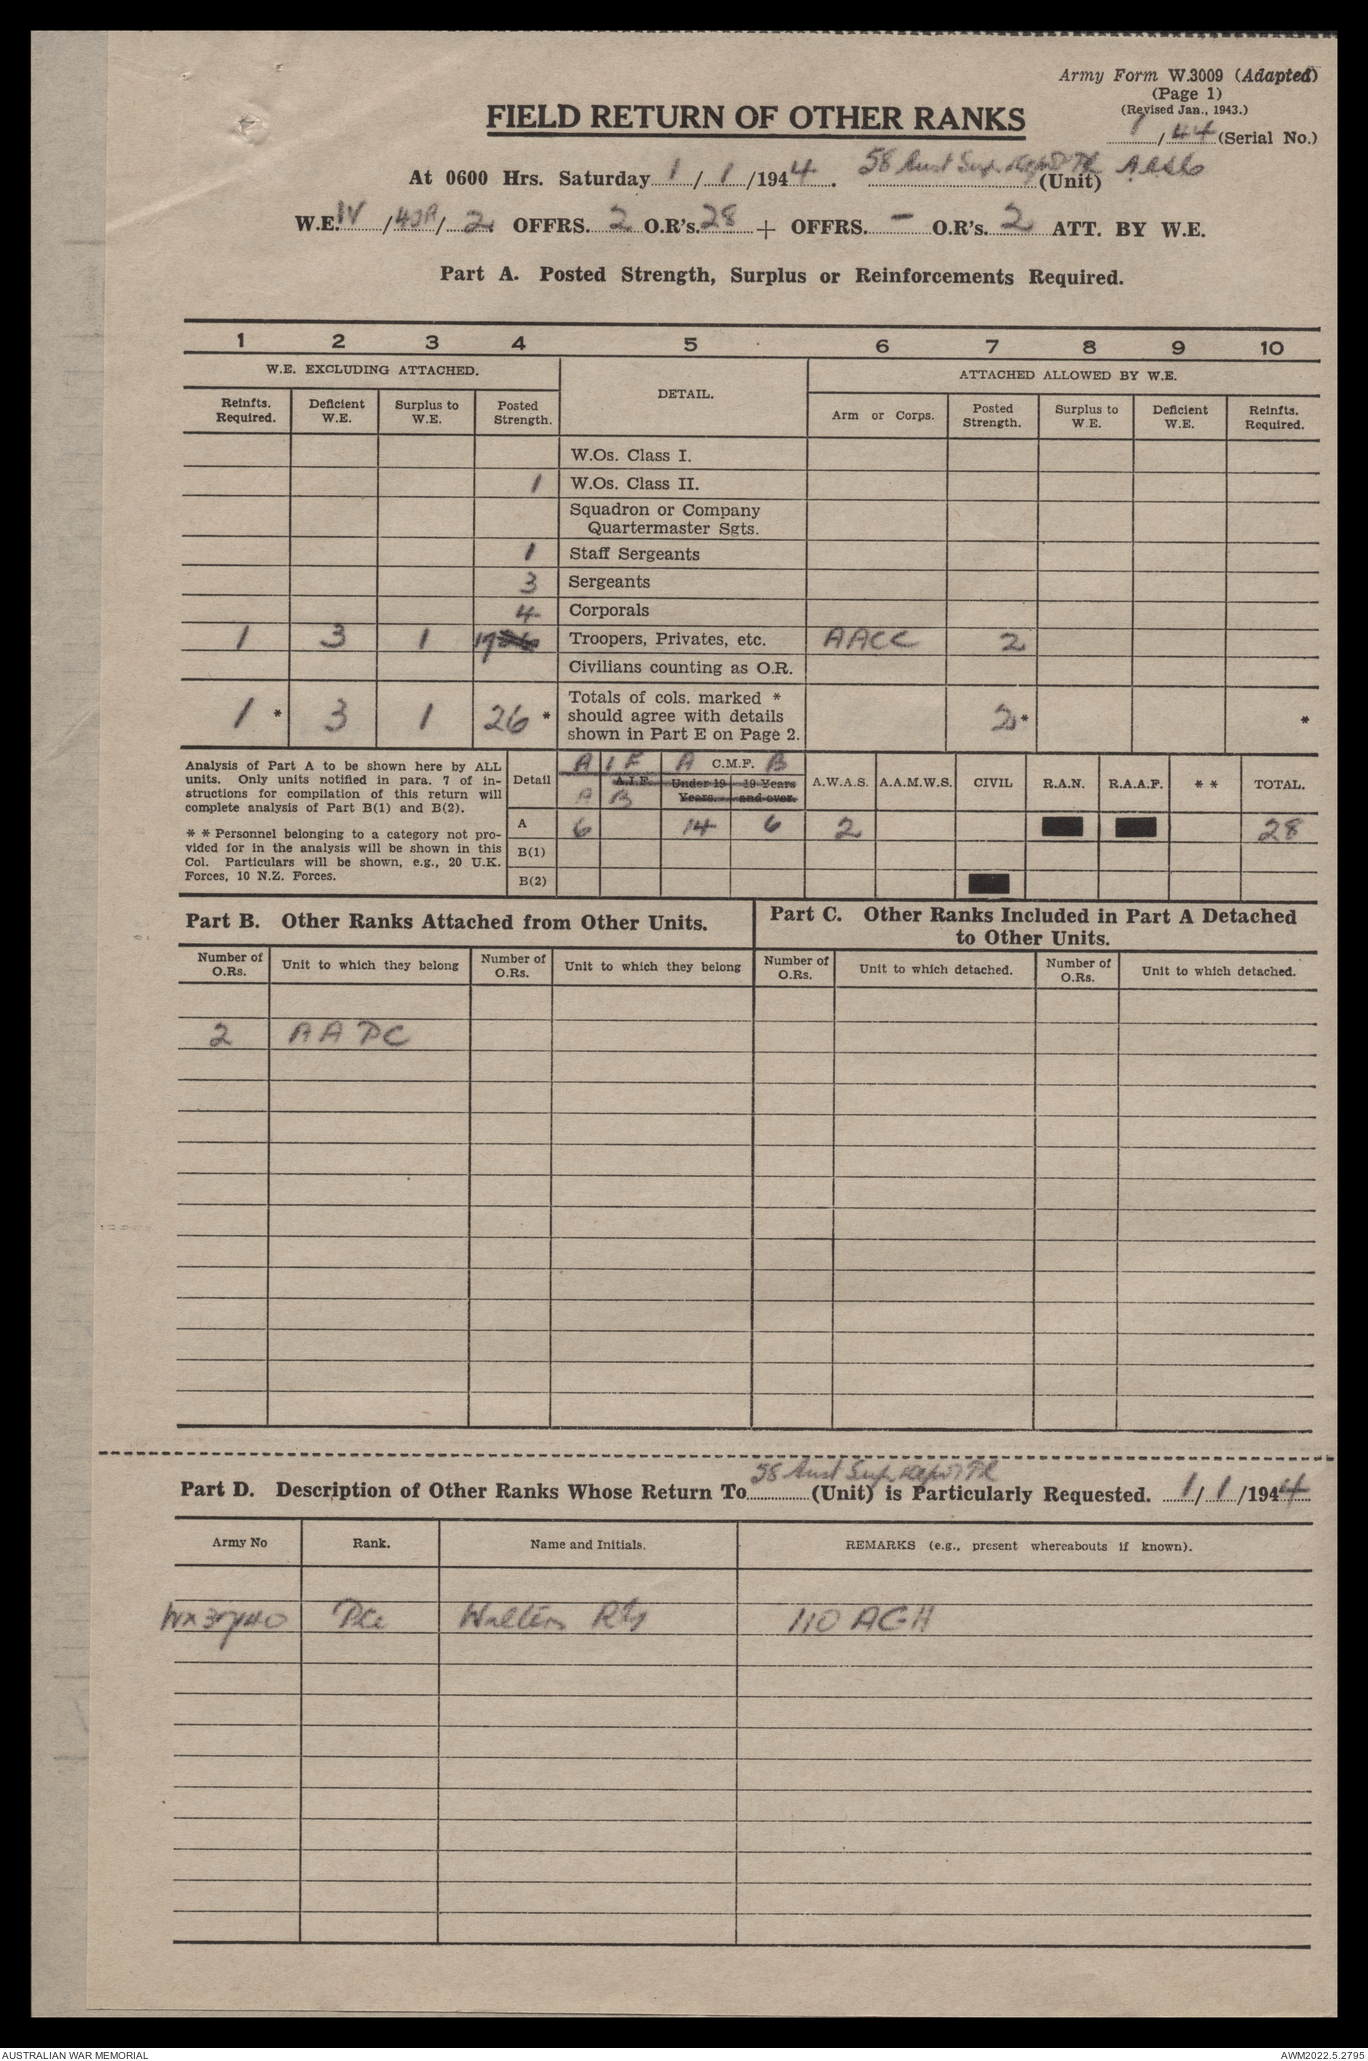 Army Form W.3009 (Adapted)
(Page 1)
(Revised Jan., 1943.)
1/44 (Serial No.)
FIELD RETURN OF OTHER RANKS
At 0600 Hrs. Saturday 1/1/1944. 58 Aust Sup. Depot Pl (Unit) AASC
W.E. IV/4JA/2 OFFRS. 2 O.R's. 28 + OFFRS. – O.R's. 2 ATT. BY W.E.
Part A. Posted Strength, Surplus or Reinforcements Required.
1 2 3 4 5 6 7 8 9 10
W.E. EXCLUDING ATTACHED. DETAIL. ATTACHED ALLOWED BY W.E.
Reinfts. Required. Deficient W.E. Surplus to W.E. Posted Strength. Arm or Corps. Posted Strength. Surplus to W.E. Deficient W.E. Reinfts. Required.
W.Os. Class I.
1 W.Os. Class II.
Squadron or Company
Quartermaster Sgts.
1 Staff Sergeants
3 Sergeants
4 Corporals
1 3 1 17 Troopers, Privates, etc. AACC 2
Civilians counting as O.R.
1 * 3 1 26 * Totals of cols. marked * should agree with details shown in Part E on Page 2. 2 * *
Analysis of Part A to be shown here by ALL
units. Only units notified in para. 7 of in-
structions for compilation of this return will
complete analysis of Part B(1) and B(2).
* * Personnel belonging to a category not pro-
vided for in the analysis will be shown in this
Col. Particulars will be shown, e.g., 20 U.K.
Forces, 10 N.Z. Forces.
Detail A I F A C.M.F. B A.W.A.S. A.A.M.W.S. CIVIL R.A.N. R.A.A.F. * * TOTAL.
A.I.F. Under 19 Years. 19 Years and over.
A B
A 6 14 6 2 28
B(1)
B(2)
Part B. Other Ranks Attached from Other Units.
Part C. Other Ranks Included in Part A Detached
to Other Units.
Number of O.Rs. Unit to which they belong Number of O.Rs. Unit to which they belong Number of O.Rs. Unit to which detached. Number of O.Rs. Unit to which detached.
2 AAPC
Part D. Description of Other Ranks Whose Return To 58 Aust Sup. Depot Pl (Unit) is Particularly Requested. 1/1/1944
Army No Rank. Name and Initials. REMARKS (e.g., present whereabouts if known).
Pte Walters 110 AGH
AUSTRALIAN WAR MEMORIAL
AWM2022.5.2795